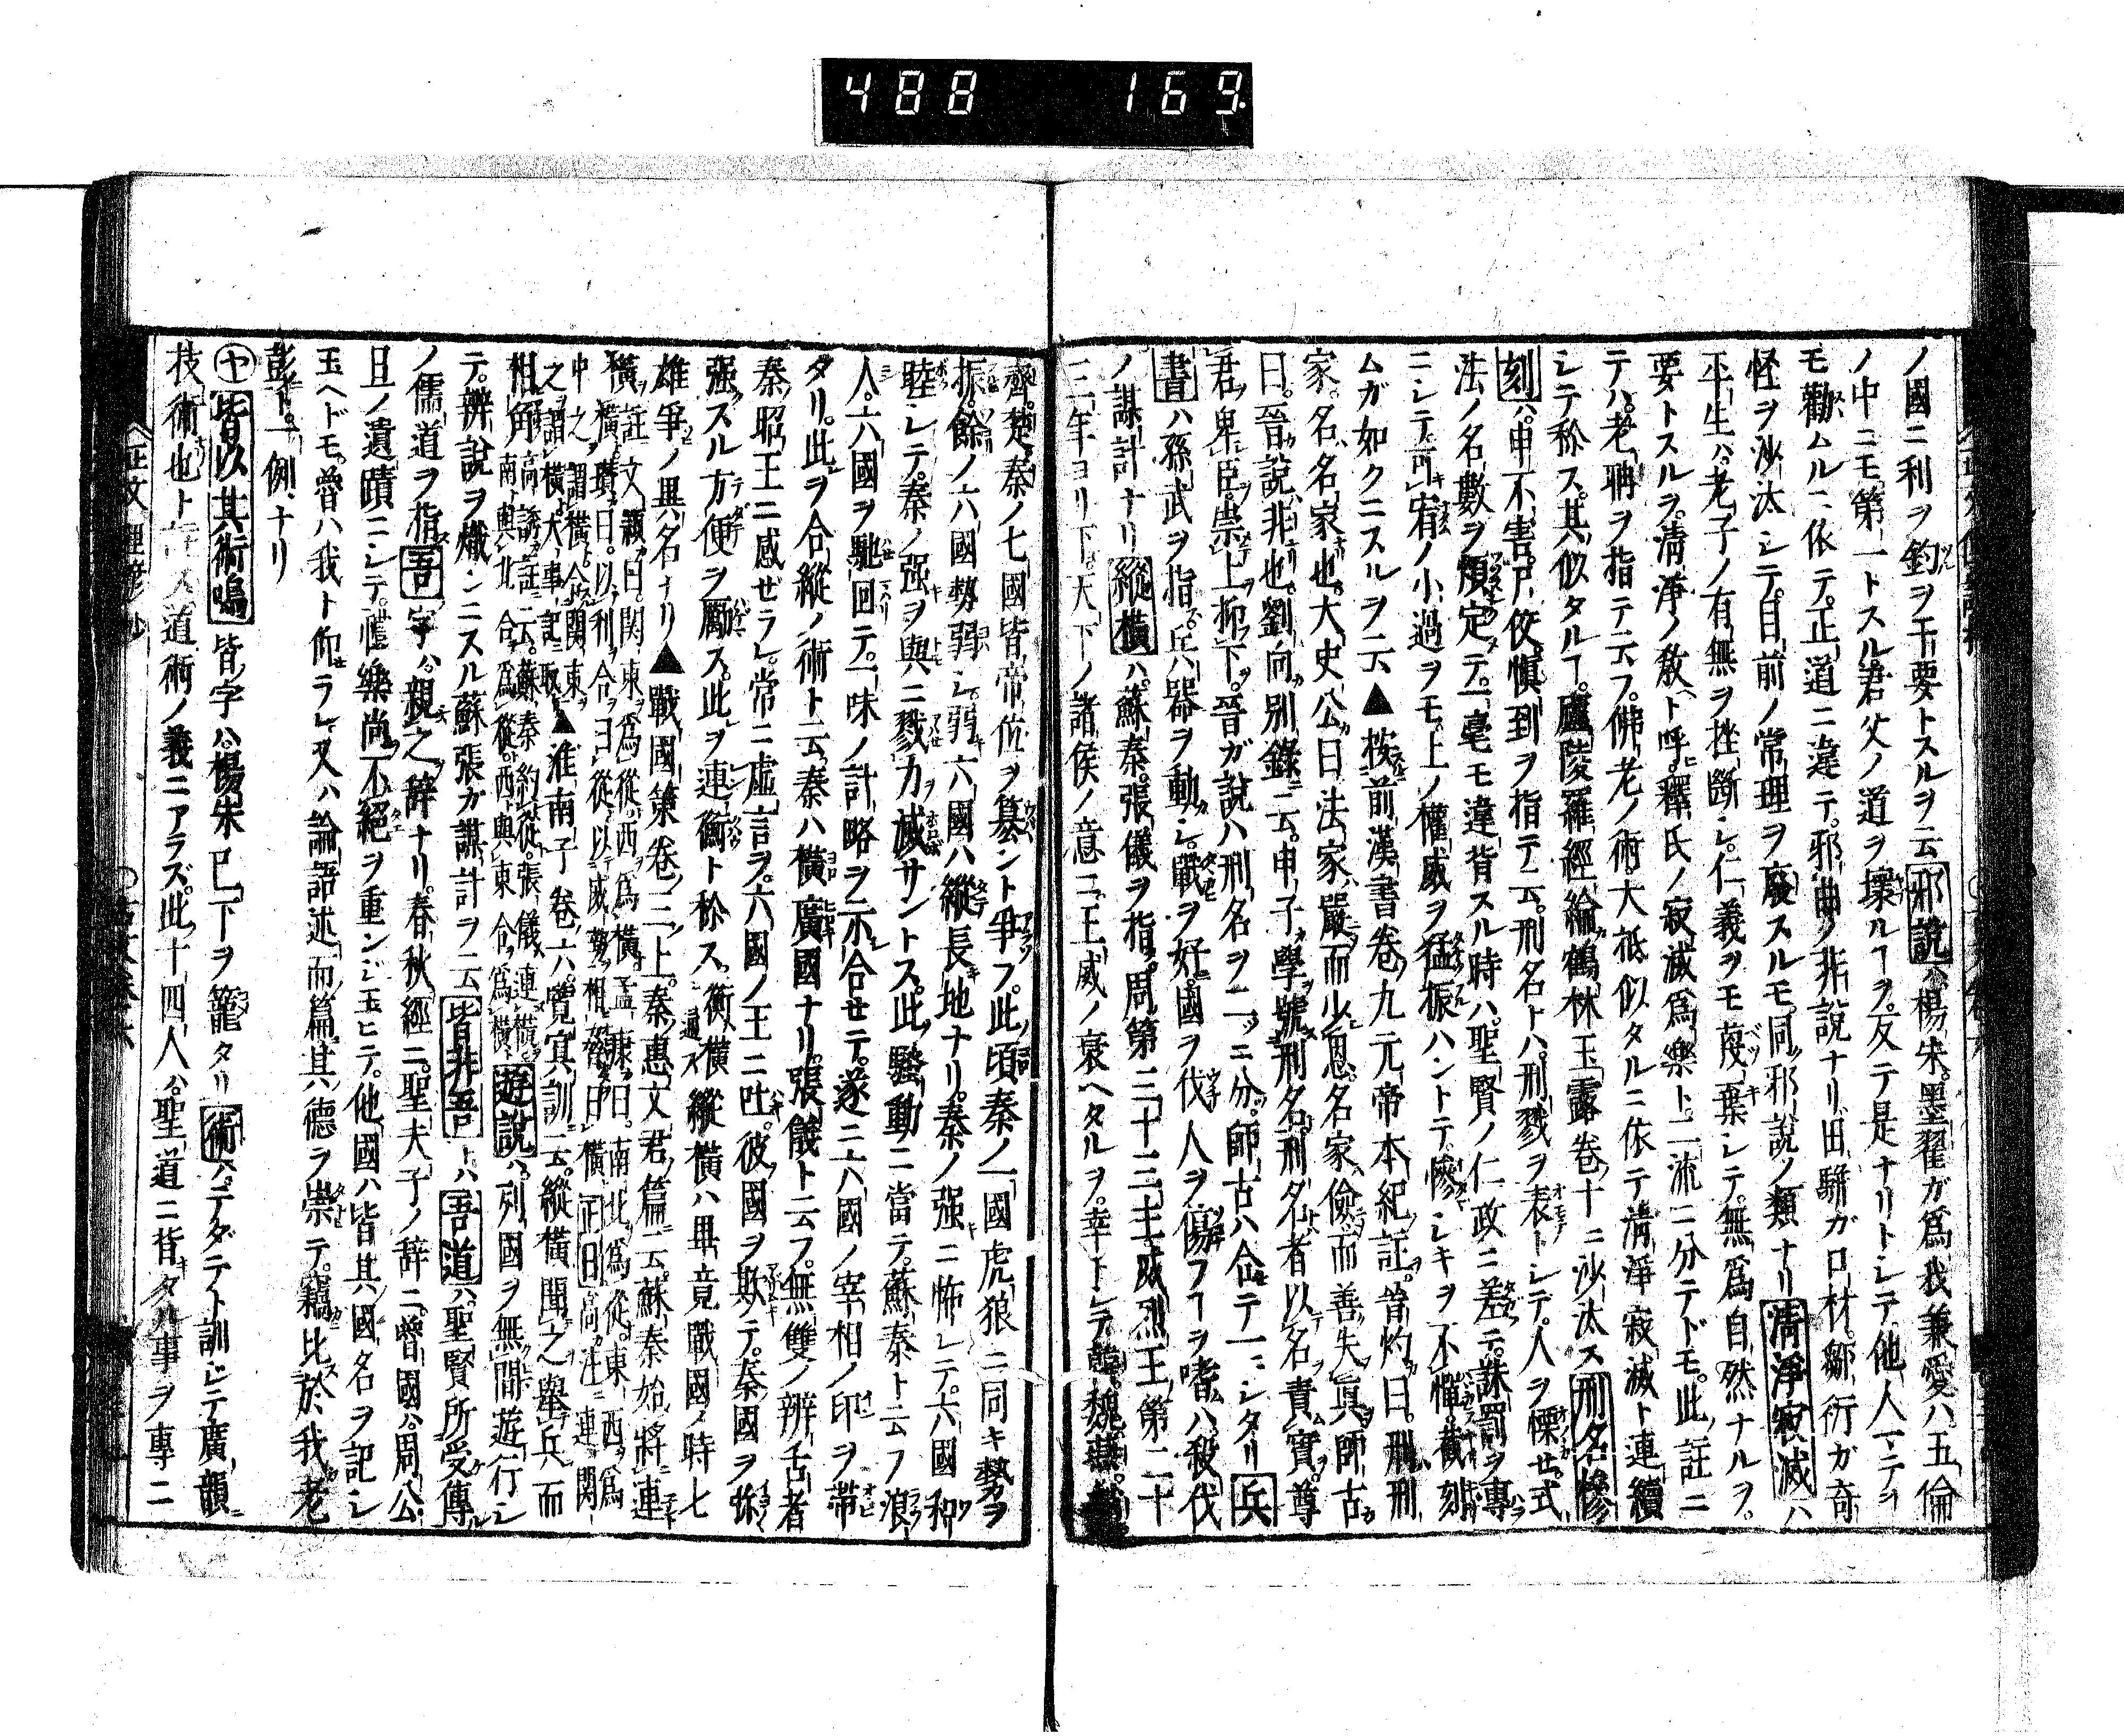 488 169
ノ國ニ利ヲ釣ヲ干要トスルヲ云邪說ハ楊朱墨翟ガ爲我兼愛ハ五倫
ノ中ニモ第一トスル君父ノ道ヲ壞ルヿヲ反テ是ナリトシテ他人ニテヲ
モ勸ムルニ依テ正道ニ違テ邪曲ノ非說ナリ田駢ガ口材鄒衍ガ奇
怪ヲ沙汰シテ目前ノ常理ヲ廢スルモ同ク邪說ノ類ナリ清淨寂滅ハ
平生ハ老子ノ有無ヲ挫斷シ仁義ヲモ蔑棄シテ無爲自然ナルヲ
要トスルヲ清淨ノ敎ト呼ヒ釋氏ノ寂滅爲樂ト二流ニ分テドモ此註ニ
テハ老聃ヲ指テ云フ佛老ノ術大抵似タルニ依テ清淨寂滅ト連續
シテ称ス其似タルヿ盧陵羅經綸鶴林玉露卷十ニ沙汰ス刑名慘
刻ハ申不害尸佼愼到ヲ指テ云刑名トハ刑戮ヲ表トシテ人ヲ慄セ式
法ノ名數ヲ煩定テ一毫モ違背スル時ハ聖賢ノ仁政ニ差テ誅罰ヲ專
ニシテ可宥ノ小過ヲモ上ノ權威ヲ猛振ハントテ慘シキヲ不憚截刻
ムガ如クニスルヲ云▲按前漢書卷九元帝本紀註晉灼曰刑刑
家名名家也大史公曰法家嚴而少恩名家儉而善失眞師古
曰晉說非也劉向別錄云申子學號刑名刑名者以名責實尊
君卑臣崇上抑下晉ガ說ハ刑名ヲ二ツニ分師古ハ合テ一ニシタリ兵
書ハ孫武ヲ指兵器ヲ動シ戰ヲ好國ヲ伐人ヲ傷フヿヲ嗜ハ殺伐
ノ謀計ナリ縱橫ハ蘇秦張儀ヲ指周第三十三主威烈王第二十
三年ヨリ下天下ノ諸侯ノ意ニ王威ノ衰ヘタルヲ幸トシテ韓魏燕趙
齊楚秦ノ七國皆帝位ヲ簒ント爭フ此頃秦ノ一國虎狼ニ同キ勢ヲ
振餘ノ六國勢弱シ弱キ六國ハ縱長地ナリ秦ノ强ニ怖レテ六國和
睦シテ秦ノ强ヲ與ニ戮力滅サントス此騷動ニ當テ蘇秦ト云フ浪
人六國ヲ馳回テ一味ノ計略ヲ示合セテ遂ニ六國ノ宰相ノ印ヲ帶
タリ此ヲ合縱ノ術ト云秦ハ橫廣國ナリ張儀ト云フ無雙ノ辨舌者
秦昭王ニ感セラレ常ニ虛言ヲ六國ノ王ニ吐彼國ヲ欺テ秦國ヲ弥
强スル方便ヲ勵ス此ヲ連衡ト称ス衡橫通ス縱橫ハ畢竟戰國ノ時七
雄爭ノ異名ナリ▲戰國策卷三上秦惠文君篇云蘇秦始將連
橫註文穎曰關東爲從西爲橫孟康曰南北爲從東西爲
橫瓚曰以利合曰從以威勢相脅曰橫正曰高注連關
中之謂橫合關東
之謂橫大事記取▲淮南子卷六覽冥訓云縱橫間之舉兵而
相角高誘註云蘇秦約從張儀連橫
南與北合爲從西與東合爲橫遊說ハ列國ヲ無間遊行シ
テ辨說ヲ熾ンニスル蘇張ガ謀計ヲ云皆非吾トハ吾道ハ聖賢所受傳
ノ儒道ヲ指吾字ハ親之辭ナリ春秋經ニ聖夫子ノ辞ニ魯國ハ周公
旦ノ遺蹟ニシテ禮樂尚不絕ヲ重ンジ玉ヒテ他國ハ皆其國名ヲ記シ
玉ヘドモ魯ハ我ト仰ラレ又ハ論語述而篇其德ヲ崇テ竊比於我老
彭ト一例ナリ
ヤ皆以其術鳴皆字ハ楊朱已下ヲ籠タリ術ハテダテト訓シテ廣韻
技術也ト註ス道術ノ義ニアラズ此十四人ハ聖道ニ背タル事ヲ專ニ